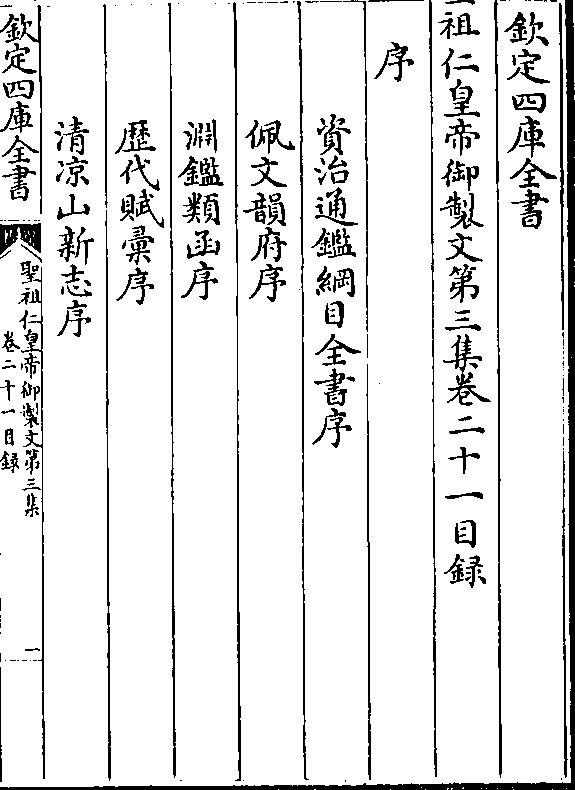 欽定四庫全書
祖仁皇帝御製文第三集卷二十一目録
序
資治通鑑綱目全書序
佩文韻府序
淵鑑類函序
歴代賦彙序
清凉山新志序
欽定四庫全書
聖祖仁皇帝御製文第三集
卷二十一目録
一